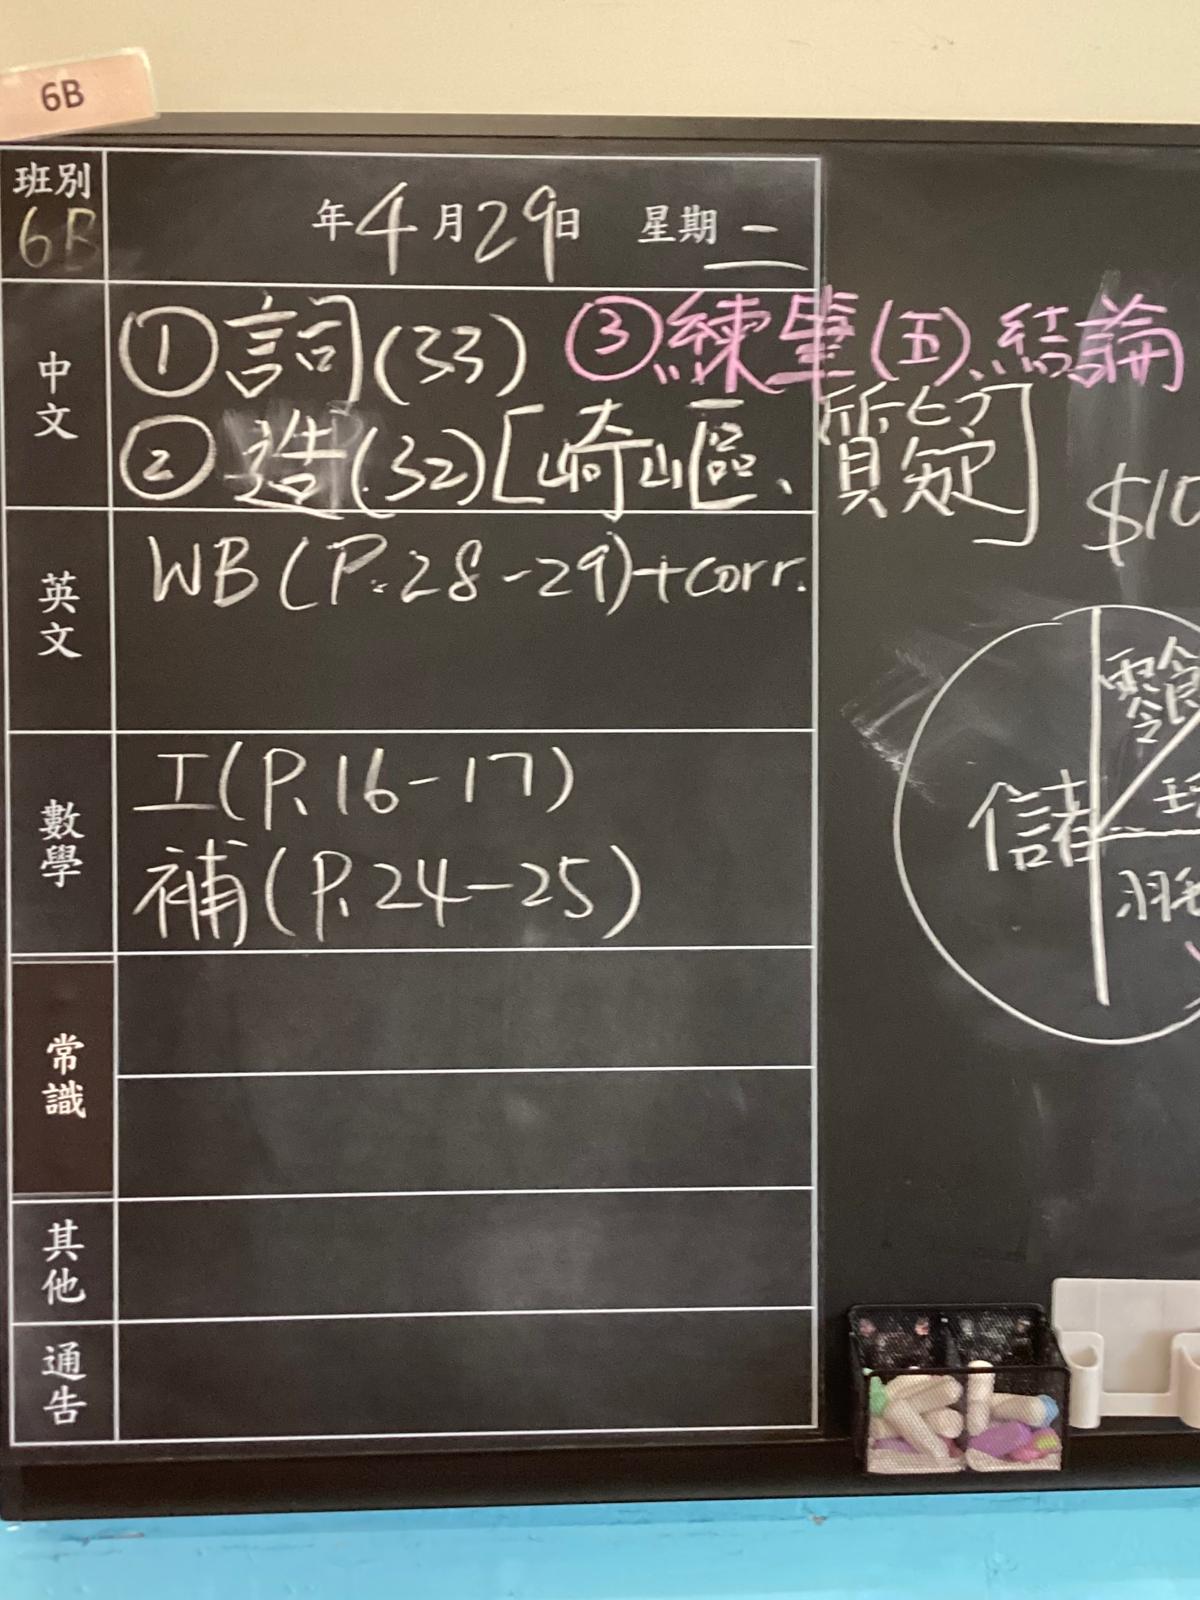 6B
班別
6B
年4月29日 星期二
中文
①詞(33) ③練筆(五)、結論
②造(32)[崎嶇、質疑]
$10
英文
WB(P.28-29)+corr.
數學
工(P.16-17)
補(P.24-25)
零食
儲
羽毛
常識
其他
通告